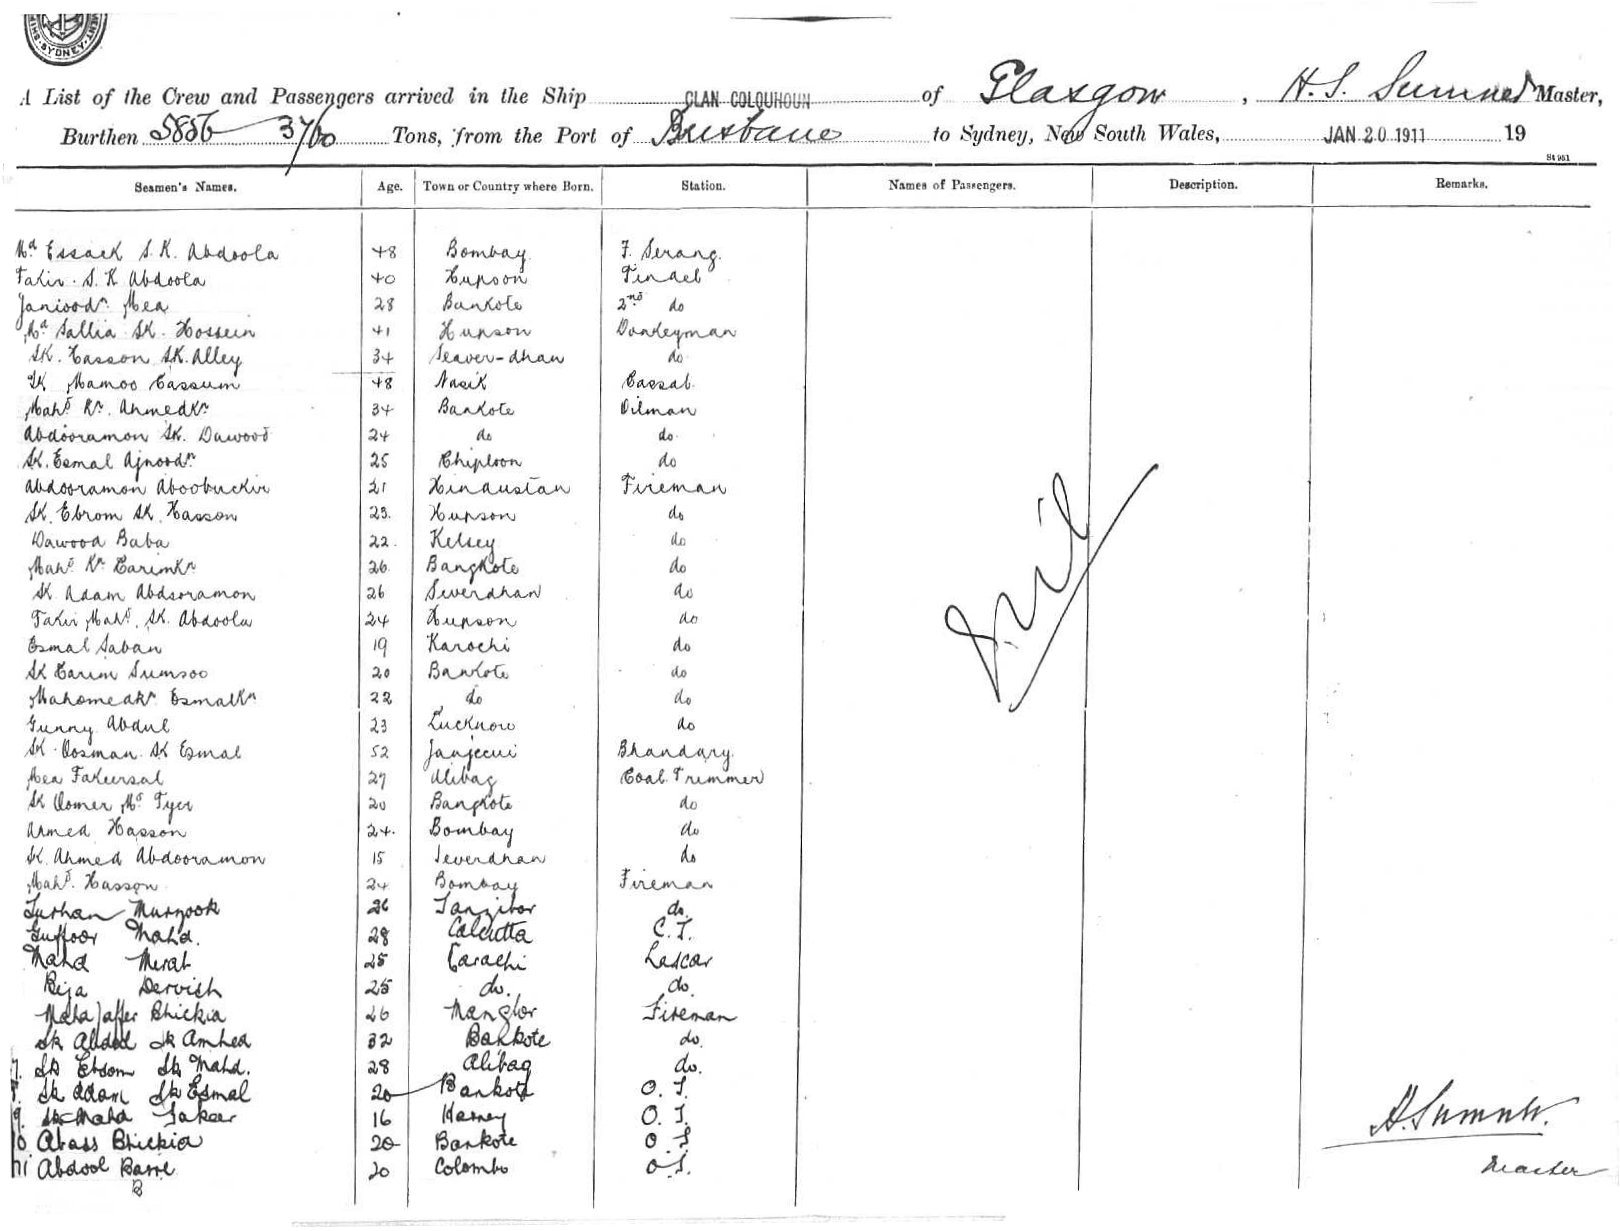 SYDNEY
A List of the Crew and Passengers arrived in the Ship CLAN COLQUHOUN of Glasgow, H. S. Sumner Master,
Burthen 5856 37/100 Tons, from the Port of Brisbane to Sydney, New South Wales, JAN 20 1911 19
St 981
Seamen's Names. Age. Town or Country where Born. Station. Names of Passengers. Description. Remarks.
Md Essack S. K. Abdoola 48 Bombay F. Serang.
Fakir S. K Abdoola 40 Hupson Tindel
Janioodn Mea 28 Bankote 2nd do
Md Sallia SK. Hossein 41 Hupson Donkeyman
SK. Hasson SK. Alley 34 Seaver-dhan do
SK Mamoo Cassum 48 Nasik Cassab
Mahd Kn. AhmedKn 34 Bankote Oilman
Abdooramon SK. Dawood 24 do do
SK. Esmal Ajnoodn 25 Chiploon do
Abdooramon Aboobuckir 21 Hindustan Fireman
SK. Ebrom SK. Hasson 23. Hupson do
Dawood Baba 22. Kelsey do
Mahd Kn CarimKn 26 Bangkote do
SK Adam Abdooramon 26 Severdhan do
Fakir Mahd. SK. Abdoola 24 Hupson do
Esmal Saban 19 Karochi do
SK Carim Sumsoo 20 Bankote do
MahomedKn EsmalKn 22 do do
Gunny Abdul 23 Lucknow do
SK. Oosman SK Esmal 52 Bhandary.
Mea Fakeersal 27 Alibag Coal Trimmer
SK Oomer Md Tyer 20 Bangkote do
Ahmed Hasson 24. Bombay do
SK. Ahmed Abdooramon 15 Severdhan do
Mahd. Hasson 24 Bombay Fireman
Murzook 26 Zanzibar do.
Guffoor Mahd. 28 Calcutta C. T.
Mahd Merab 25 Carachi Lascar
Dervish 25 do. do.
Mahd Jaffer Bhickia 26 Manglor Fireman
Sk Abdul Sk Amhed 32 Bankote do.
7. Sk Ebrom Sk Mahd. 28 Alibag do.
8. Sk Adam Sk Esmal 20 Bankote O. S.
9. Sk Mahd Fakeer 16 Harney O. S.
10. Abass Bhickia 20 Bankote O S
11 Abdool Barre 20 Colombo O S.
Nil
H. Sumner.
Master